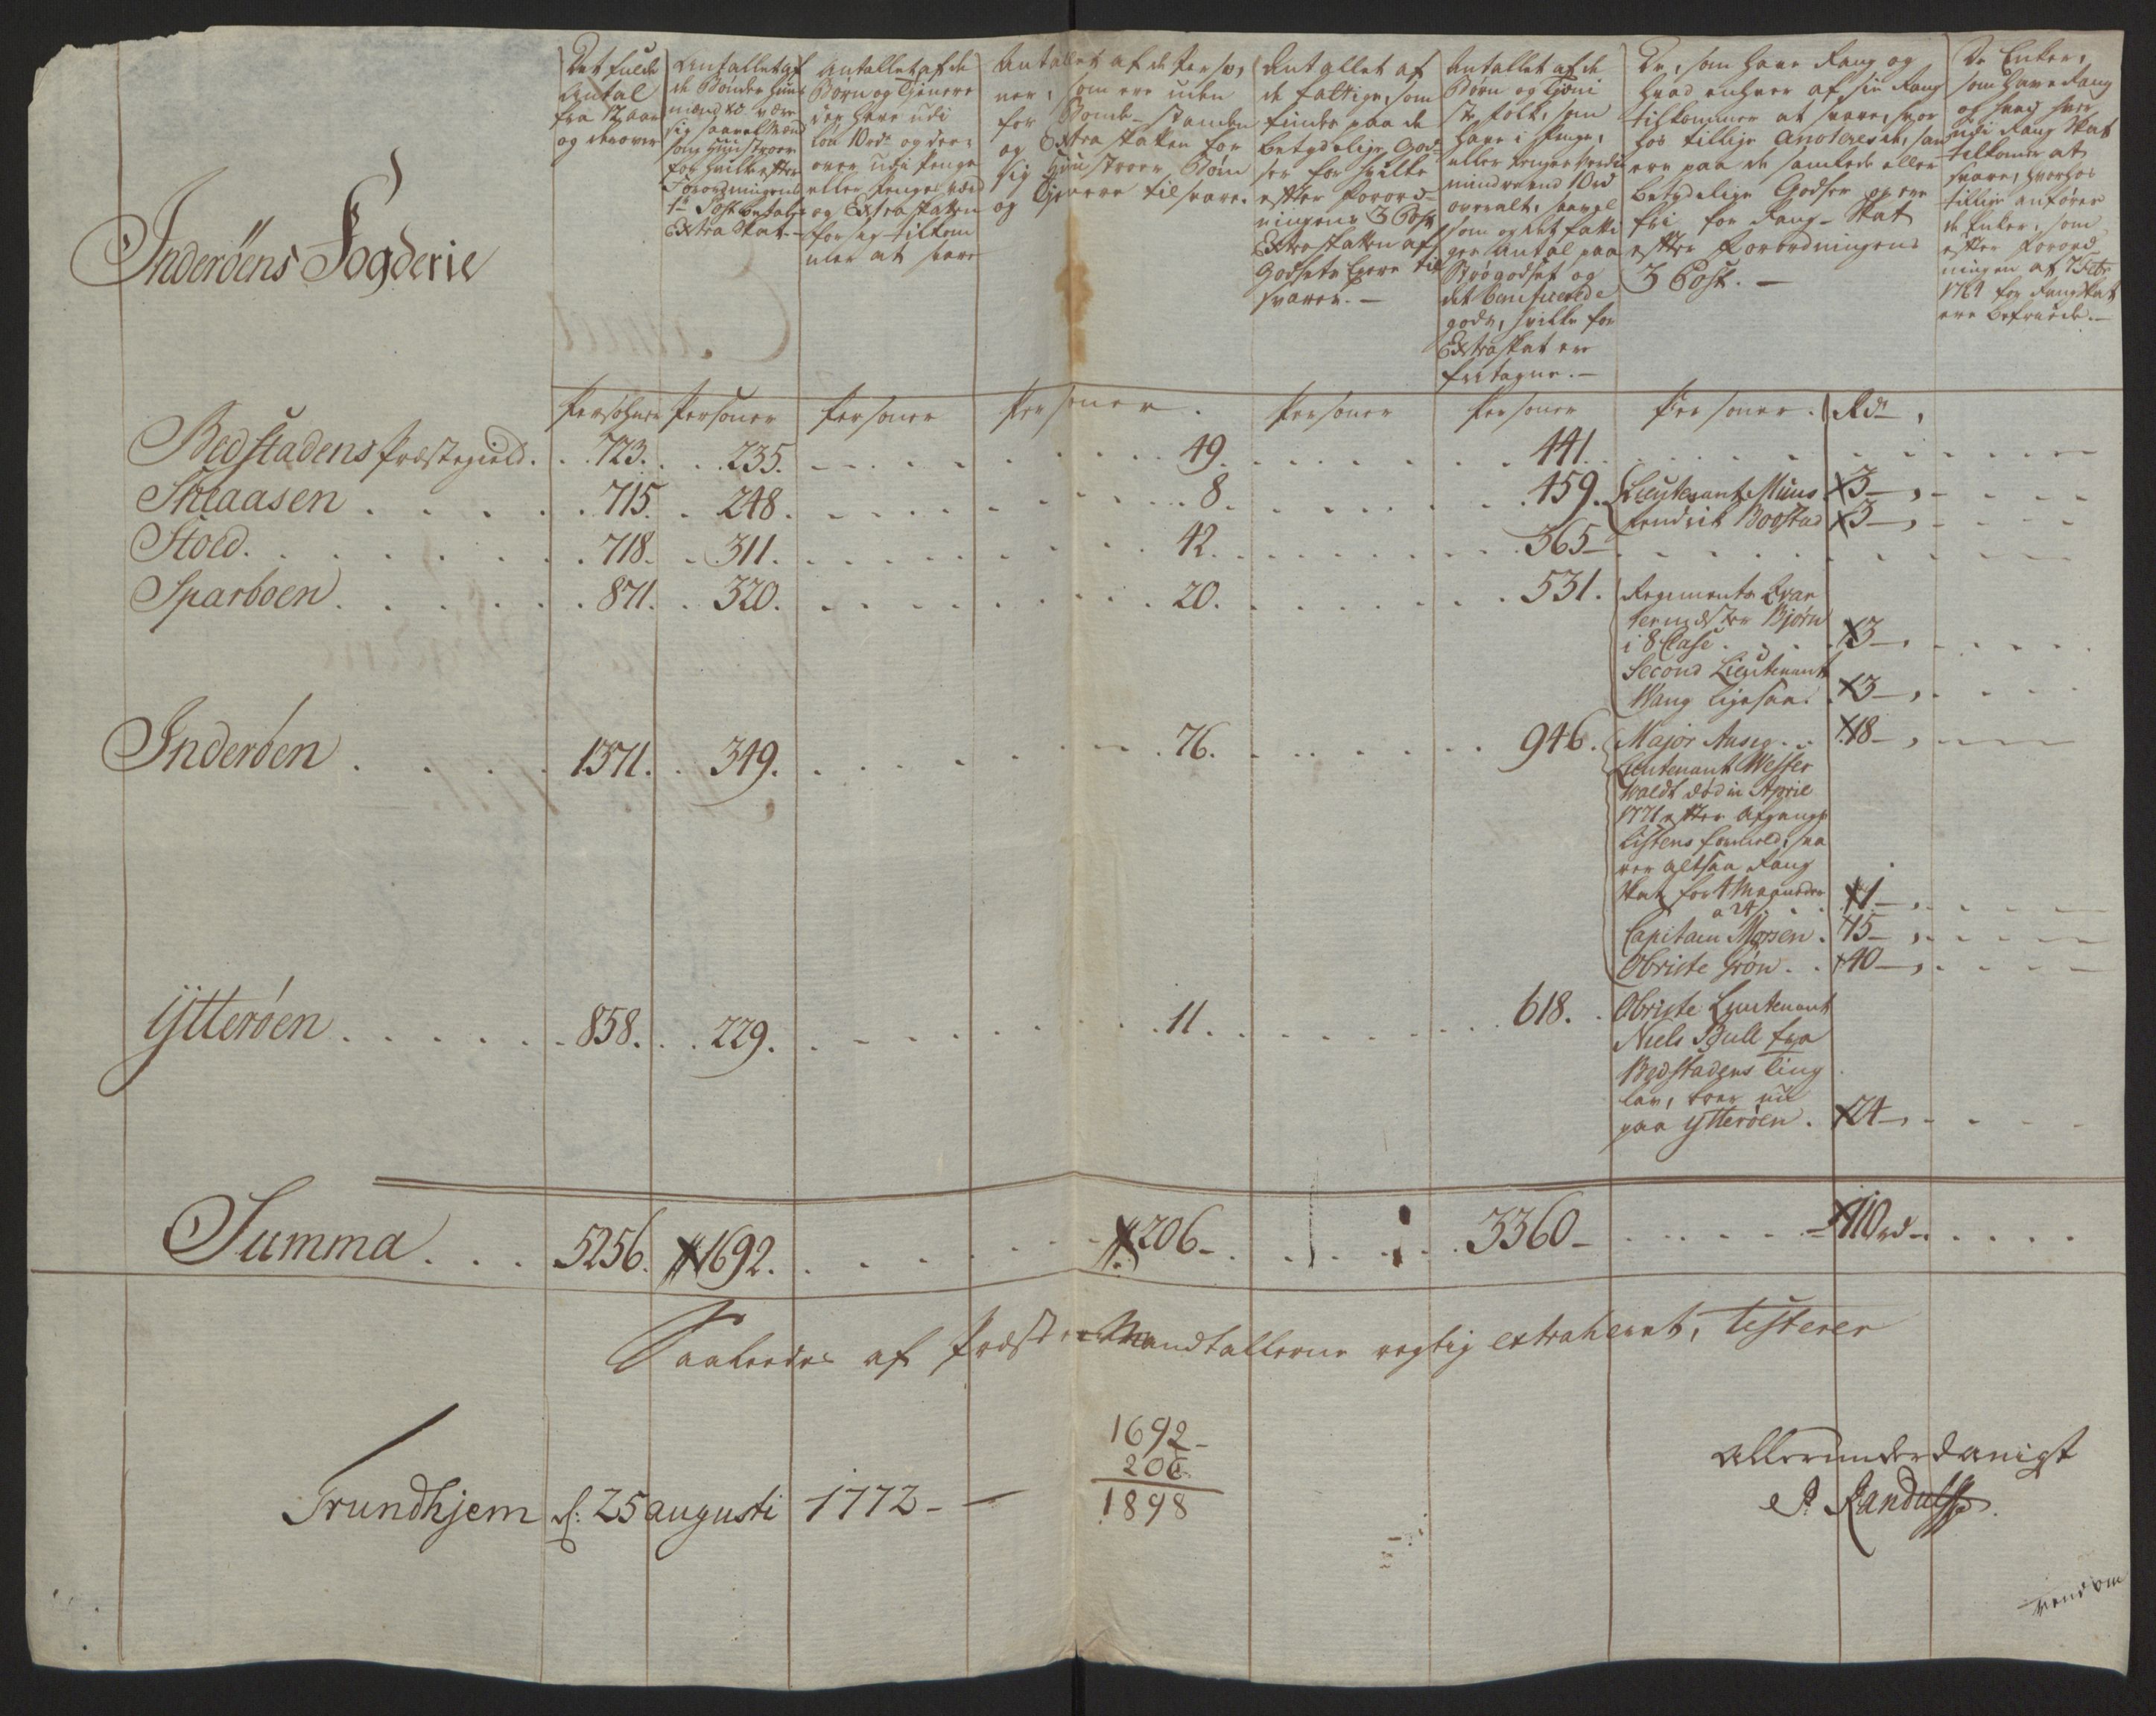 Inderöens Fogderie
Det fulde
Antal
fra 12 aar
og derover
Antallet af
de Bønder Huus
mænd &c være
sig saavel Mænd
som Hustroer
for hvilke efter
Forordningens
1te Post betales
Extra Skat.
Antallet af de
Børn og Tjenere
der have udi
løn 10 rdr og der-
over udi penge
eller penges værd
og Extraskatten
for sig tilkom
mer at svare
Antallet af de Perso-
ner, som ere uden
for Bonde-standen
og Extra skatten for
sig Hustroer Børn
og Tjenere tilsvare.
Antallet af
de fattige, som
findes paa de
betydelige God-
ser for hvilke
efter Forord-
ningens 3 Post
Extraskatten af
Godsets Eyere til
svares. —
Antallet af de
Børn og Tjeni
ste folk, som
have i penge,
eller penges værdi
mindre end 10 rd
overalt, saavel
som og det fatti
ges Antal paa
Strøgodset og
det beneficerede
gods, hvilke for
Extraskat ere
fritagne. —
De, som have Rang og
hvad enhver af sin Rang
tilkommer at svare, hvor
hos tillige Anoteres de, som
ere paa de samlede eller
betydelige Godser og ere
fri for Rang-Skat
efter Forordningens
3 Post. —
De Enker,
som have Rang
og hvad hver
udi Rang Skat
tilkomer at
svare, hvorhos
tillige anføres
de Enker, som
efter Forord
ningen af 7 Febr
1764 for Rangskat
ere befriede. —
Persohner Personer Personer Personer. Personer Personer Personer. Rdr
Bedstadens Præstegield. 723. 235. 49. 441.
Snaasen 715. 248. 8. 459. Lieutenant Müus 3
Fendrik Bogstad 3
Stoed. 718. 311. 42. 365
Sparboen 871. 320. 20. 531. Regiments Qvar
termester Bjørn
i 8 Classe 3
Second Lieutenant
Wang ligesaa. 3
Inderöen 1371. 349. 76. 946. Major Ansig 18
Lieutenant Wesser
waldt død in April
1771 efter Afgangs
listens formeld, sva
rer altsaa Rang
Skat for 4 Maaneder
a 24 1
Capitain Morsen. 15
Obriste Grøn 40
Ytteröen 858. 229. 11. 618. Obriste Lieutenant
Niels Bull fra
Bedstadens Ting
lav, boer nu
paa Ytteröen. 24
Summa 5256. 1692. 206 3360 110 rd
Saaledes af Præste-Mandtallerne rigtig extraheret, Testerer
Trundhjem d: 25 augusti 1772 —
1692
206
1898
Allerunderdanigst
P. Randulff
Vend om